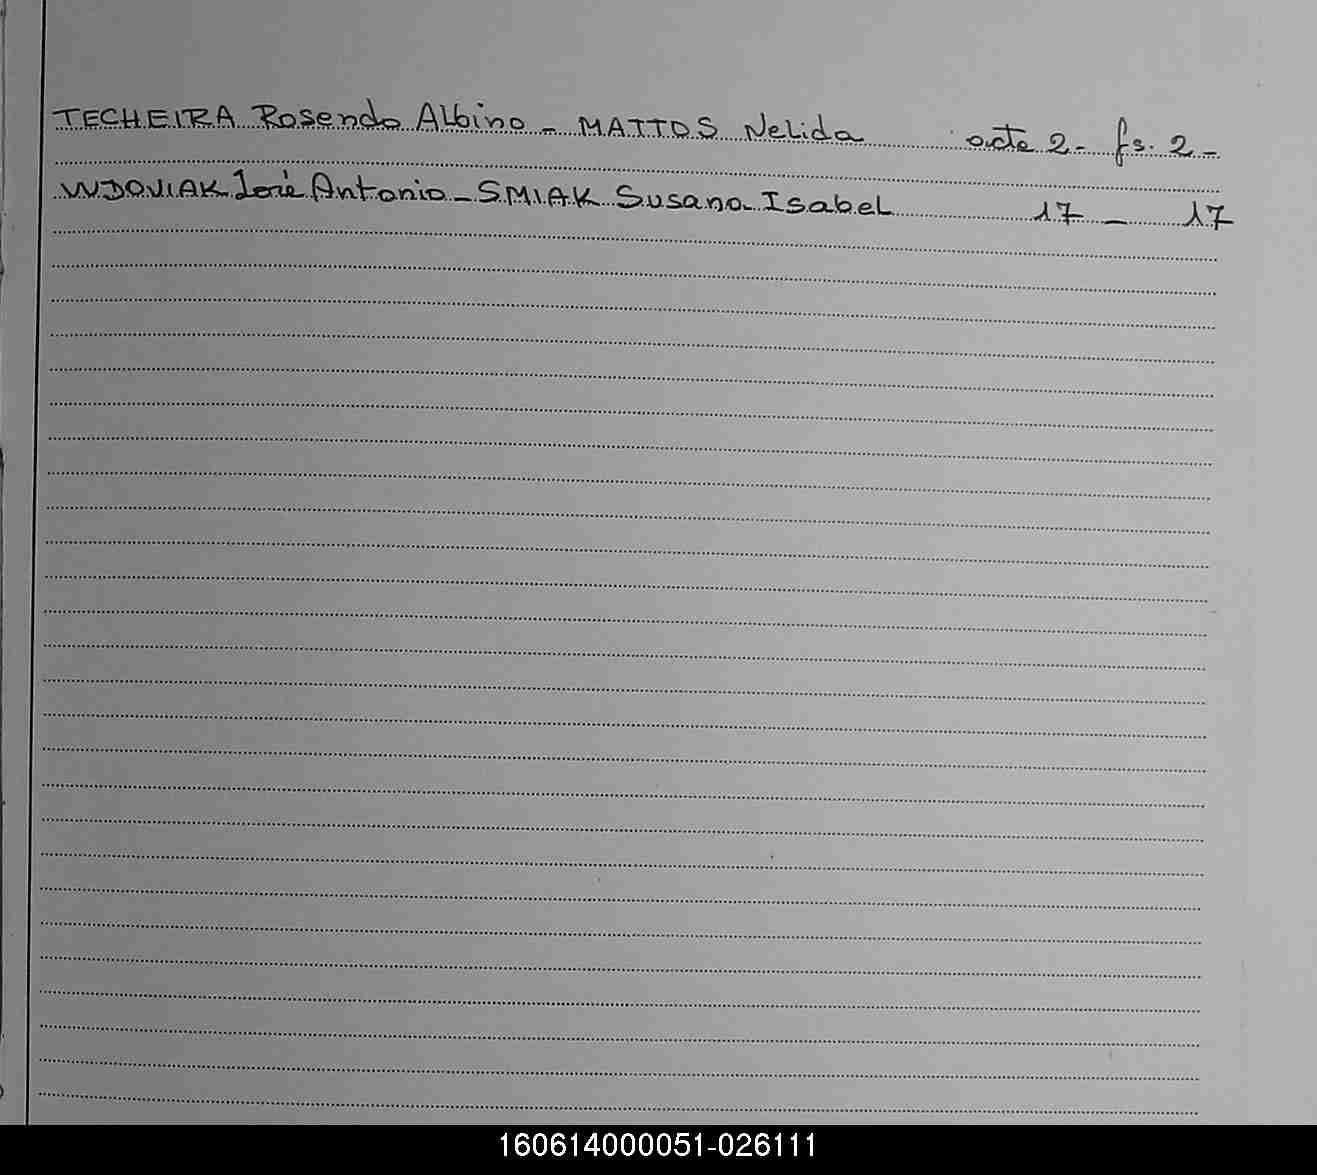 TECHEIRA Rosendo Albino - MATTOS Nelida acta 2 - fs. 2 -
WDOVIAK José Antonio - SMIAK Susana Isabel 17 - 17
160614000051-026111